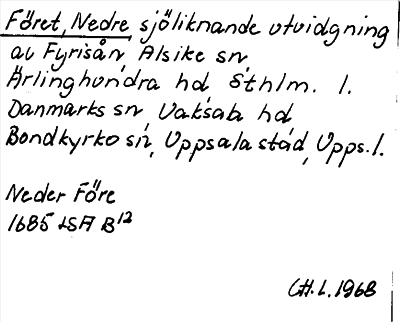 Föret, Nedre sjöliknande utvidgning
av Fyrisån Alsike sn,
Ärlinghundra hd Sthlm. l.
Danmarks sn Vaksala hd
Bondkyrko sn, Uppsala stad, Upps. l.
Neder Före
1685 LSA B12
C.H. L. 1968